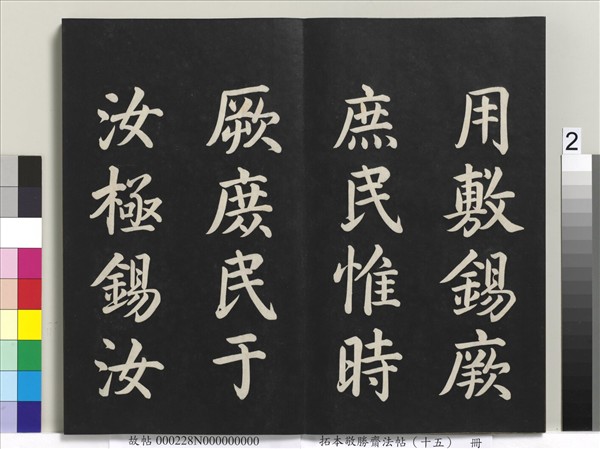 用敷錫厥
庶民惟時
厥庶民于
汝極錫汝
2
故帖 000228N000000000
拓本敬勝齋法帖（十五） 冊